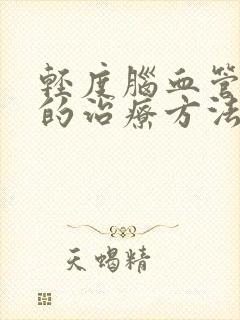 輕度腦血管
的治療方法
天蝎精